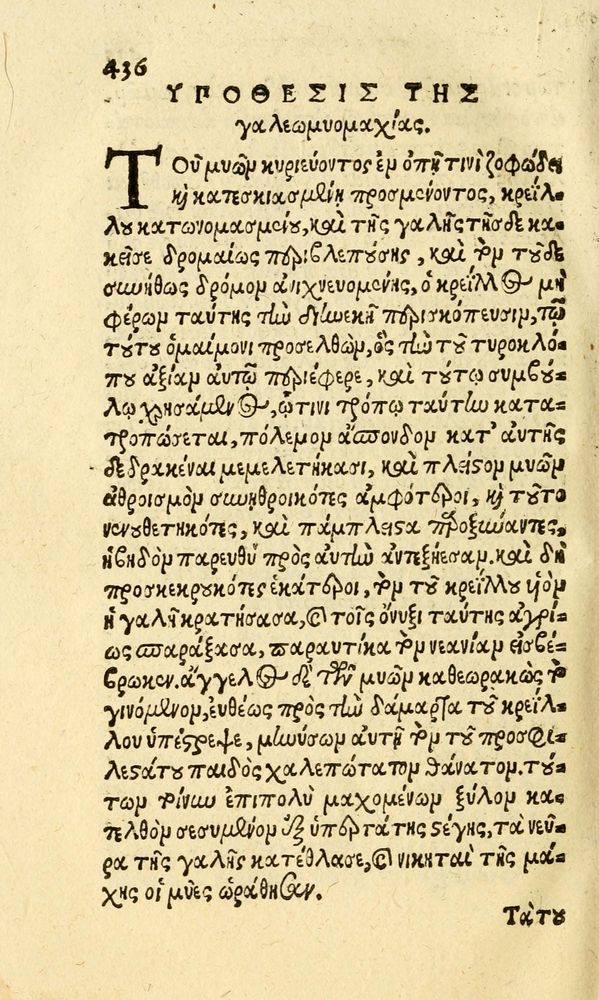 436
ΥΠΟΘΕΣΙΣ ΤΗΣ
γαλεωμυομαχίας.
ΤΟῦ μυῶν κυριεύοντος ἐν ὀπῇ τινὶ ζοφώδει
καὶ κατεσκιασμένῃ προσμένοντος, κρεῖλ-
λου κατωνομασμένου, καὶ τῆς γαλῆς τῆσδε κα-
κεῖσε δρομαίως περιβλεπούσης, καὶ τὸν τοῦδε
συνήθως δρόμον ἀνιχνευομένης, ὁ κρεῖλλος μὴ
φέρων ταύτης τὴν διηνεκῆ περισκόπευσιν, τῷ
τούτου ὁμαίμονι προσελθὼν, ὃς τὴν τοῦ τυροκλό-
που ἀξίαν αὐτῷ περιέφερε, καὶ τούτῳ συμβού-
λῳ χρησάμενος, ᾧτινι τρόπῳ ταύτην κατα-
τροπώσεται, πόλεμον ἄσπονδον κατ' αὐτῆς
δεδρακέναι μεμελετήκασι, καὶ πλεῖστον μυῶν
ἀθροισμὸν συνηθροικότες ἀμφότεροι, καὶ τοῦτο
νενουθετηκότες, καὶ πάμπλειστα προξυνάντες,
ἡβηδὸν παρευθὺ πρὸς αὐτὴν ἀντεξῄεσαν. καὶ δὴ
προσκεκρουκότες ἑκάτεροι, τὸν τοῦ κρεΐλλου υἱὸν
ἡ γαλῆ κρατήσασα, καὶ τοῖς ὄνυξι ταύτης ἀγρί-
ως σπαράξασα, παραυτίκα τὸν νεανίαν εἰσβέ-
βρωκεν. ἄγγελος δὲ τῶν μυῶν καθεωρακὼς τὸ
γινόμενον, εὐθέως πρὸς τὴν δάμαρτα τοῦ κρεΐλ-
λου ὑπέστρεψε, μηνύσων αὐτῇ τὸν τοῦ προσφι-
λεστάτου παιδὸς χαλεπώτατον θάνατον. τού-
των τοίνυν ἐπιπολὺ μαχομένων ξύλον κα-
πελθὸν σεσυμένον ἐξ ὑπερτάτης στέγης, τὰ νεῦ-
ρα τῆς γαλῆς κατέθλασε, καὶ νικηταὶ τῆς μά-
χης οἱ μύες ὡράθησαν.
Τὰ τοῦ